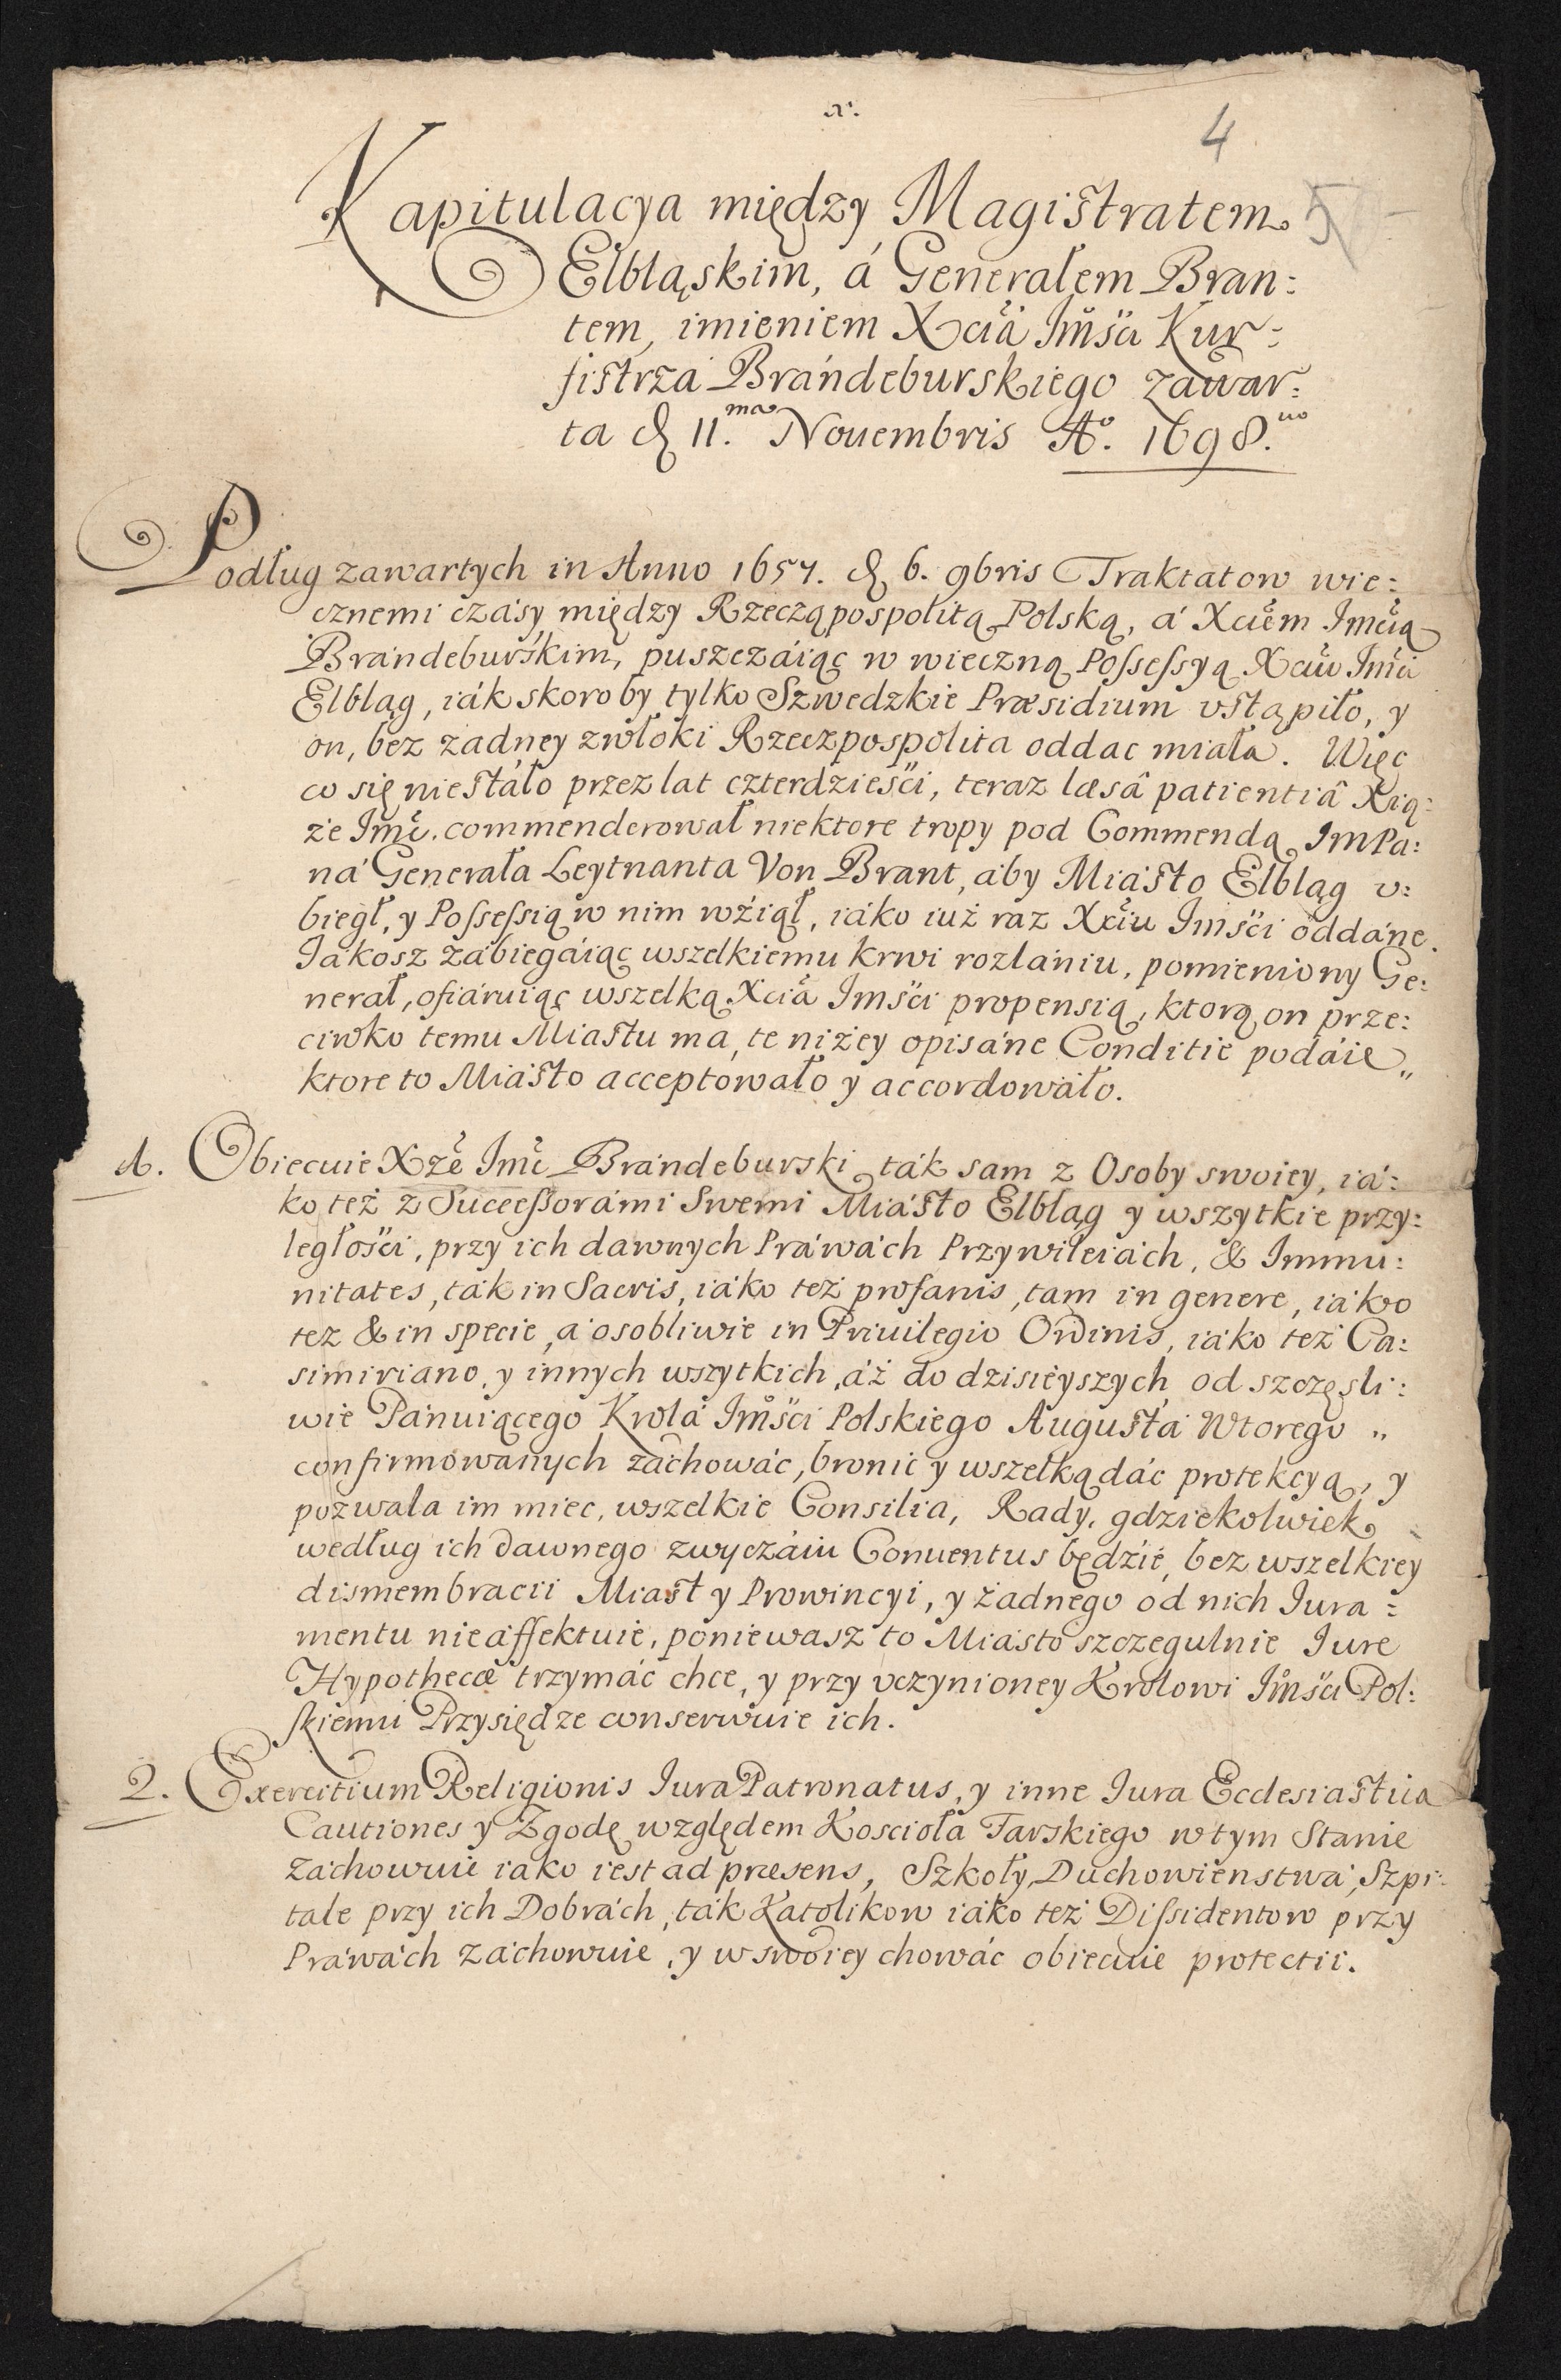 4
Kapitulacya między Magistratem
5
Elbląskim, á Generałem Bran:
tem, imieniem Xcia Jmści Kur:
fistrzá Brándeburskiego zawar:
ta d. 11.ma Nouembris Ao. 1698.uo
Podług zawartych in Anno 1657. d. 6. 9bris Traktatow wie:
cznemi czásy między Rzecząpospolitą Polską, á Xciem Jmcią
Brándeburskim, puszczáiąc w wieczną Possessyą Xciu Jmci
Elbląg, iák skoro by tylko Szwedzkie Præsidium vstąpiło, y
on, bez zadney zwłoki Rzeczpospolita oddac miała. Więc
co się niestáło przez lat czterdzieści, teraz læsâ patientiâ Xią:
że Jmć. commenderował niektore tropy pod Commendą JmPa:
ná Generała Leytnanta Von Brant, áby Miásto Elbląg v:
biegł, y Possessią w nim wźiął, iáko iuż raz Xciu Jmści oddáne.
Jákosz zábiegáiąc wszelkiemu krwi rozlániu, pomieniony Ge:
nerał, ofiáruiąc wszelką Xcia Jmści propensią, ktorą on prze:
ciwko temu Miastu ma, te niżey opisáne Conditie podáie„
ktore to Miásto acceptowáło y accordowáło.
1. Obiecuie Xże Jmć Brándeburski ták sam z Osoby swoiey, iá:
ko też z Successorámi Swemi Miásto Elbląg y wszytkie przy:
ległości, przy ich dawnych Práwách Przywileiách, & Immu:
nitates, ták in Sacris, iáko też profanis, tam in genere, iáko
tez & in specie, á osobliwie in Priuilegio Ordinis, iáko też Ca:
simiriano, y innych wszytkich, áż do dzisieyszych od szczęsli:
wie Pánuiącego Krolá Jmści Polskiego Augustá Wtorego „
confirmowánych záchowáć, bronić y wszelką dáć protekcyą, y
pozwala im miec, wszelkie Consilia, Rady, gdziekolwiek
według ich dawnego zwyczáiu Conuentus będzie, bez wszelkiey
dismembracii Miast y Prowincyi, y żadnego od nich Jura:
mentu nieáffektuie, poniewasz to Miásto szczegulnie Jure
Hypothecæ trzymáć chce, y przy vczynioney Krolowi Jmści Pol:
skiemu Przysiędze conserwuie ich.
2. Exercitium Religionis Jura Patronatus, y inne Jura Ecclesiastica
Cautiones y Zgodę względem Kościoła Farskiego w tym Stanie
záchowuie iáko iest ad præsens, Szkoły, Duchowieństwá, Szpi:
tale przy ich Dobrách, ták Katolikow iáko też Dissidentow przy
Práwách záchowuie, y w swoiey chowáć obiecuie protectii.